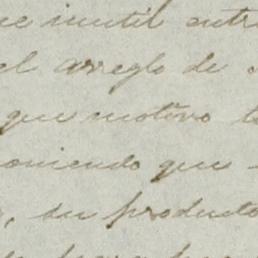 ue inutil entr
el arreglo de
que motivo l
oniendo que
, su producto